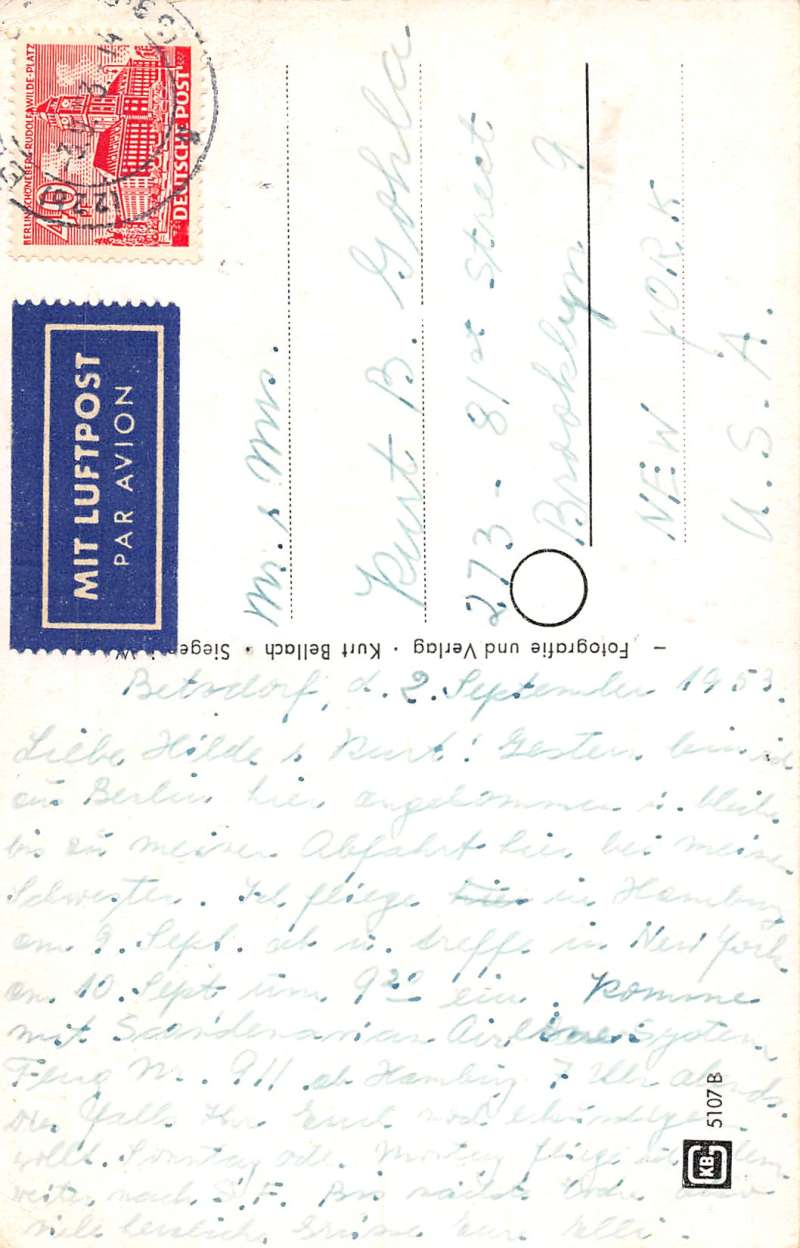 BERLIN-SCHÖNEBERG, RUDOLF-WILDE-PLATZ
40
DEUTSCHE POST
(22b)
MIT LUFTPOST
PAR AVION
Mr. & Mrs.
Kurt B. Gohla
273 - 81st Street
Brooklyn 9
NEW YORK
U. S. A.
– Fotografie und Verlag · Kurt Bellach · Siegen
Betzdorf, d. 2. September 1953.
Liebe Hilde & Kurt! Gestern bin ich
aus Berlin hier angekommen u. bleibe
bis zu meiner Abfahrt hier bei meiner
Schwester. Ich fliege hier in Hamburg
am 9. Sept. ab u. treffe in New York
am 10. Sept um 9 30 ein. Komme
mit Scandenavian Airlines System
Flug Nr. 911 ab Hamburg 7 Uhr abends.
falls Ihr Euch noch erkundigen
wollt. Sonntag od. Montag fliege ich dann
weiter nach S. F. Bis
viele herzliche Grüsse Eure Elli.
KB
5107 B